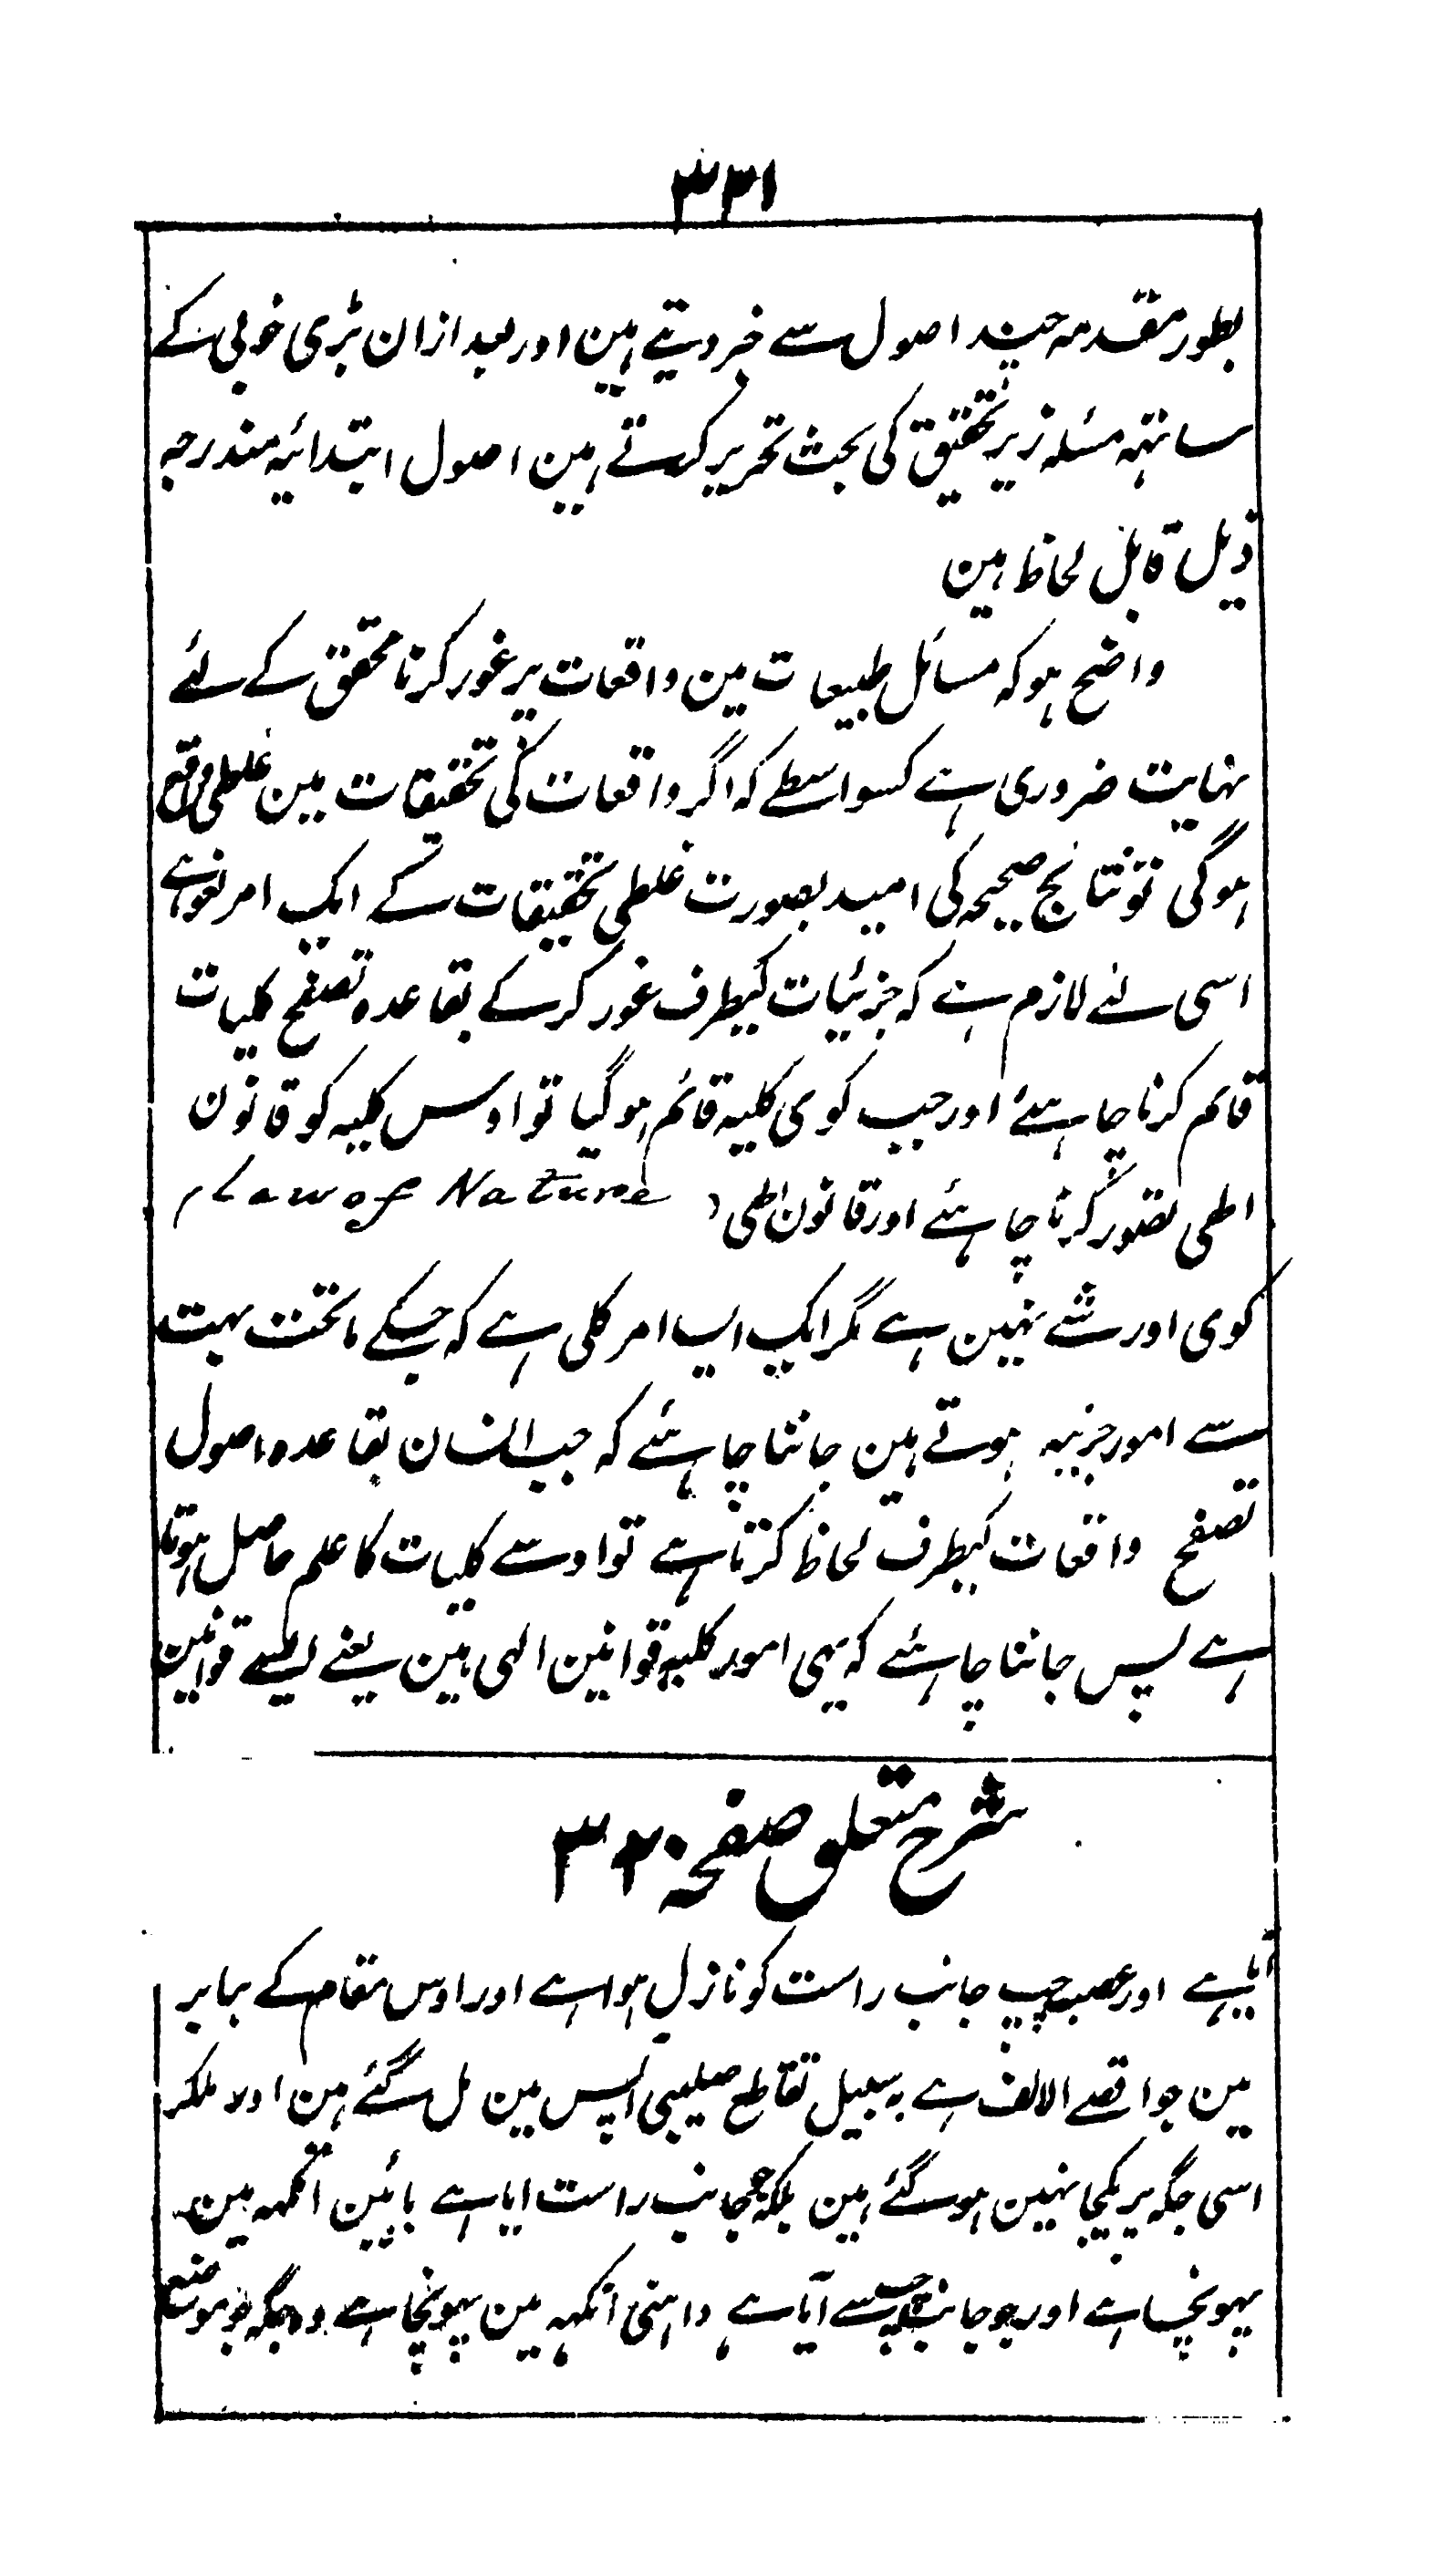 ۳۳۱
بطور مقدمہ چند اصول سے خبر دیتے ہین اور بعد ازان بڑی خوبی کے
ساتہہ مسئلہ زیر تحقیق کی بحث تحریر کرتے ہین اصول ابتدائیہ مندرجہ
ذیل قابل لحاظ ہین
واضح ہو کہ مسائل طبیعات مین واقعات پر غور کرنا محقق کے لئے
نہایت ضروری ہے کسواسطے کہ اگر واقعات کی تحقیقات مین غلطی واقع
ہوگی تو نتائج صحیحہ کی امید بصورت غلطی تحقیقات کے ایک امر لغو ہے
اسی لئے لازم ہے کہ جزئیات کیطرف غور کرکے بقاعدہ تصفح کلیات
قائم کرنا چاہئے اور جب کوی کلیہ قائم ہوگیا تو اوس کلیہ کو قانون
الہی تصور کرنا چاہئے اور قانون الہی ( Law of Nature )
کوی اور شے نہین ہے مگر ایک ایسا امر کلی ہے کہ جسکے ماتحت بہت
سے امور جزئیہ ہوتے ہین جاننا چاہئے کہ جب انسان بقاعدہ اصول
تصفح واقعات کیطرف لحاظ کرتا ہے تو اوسے کلیات کا علم حاصل ہوتا
ہے پس جاننا چاہئے کہ یہی امور کلیہ قوانین الہی ہین یعنے ایسے قوانین
شرح متعلق صفحہ ۳۲۰
آیا ہے اور عصب چپ جانب راست کو نازل ہوا ہے اور اوس مقام کے برابر
مین جو اقصے الانف ہے بہ سبیل تقاطع صلیبی آپس مین مل گئے ہین اولا ملکر
اسی جگہ پر یکجا نہین ہو گئے ہین بلکہ جو جانب راست آیا ہے بائین آنکہہ مین
پہونچا ہے اور جو جانب چپ سے آیا ہے داہنی آنکہہ مین پہونچا ہے وہ جگہ جو موضع